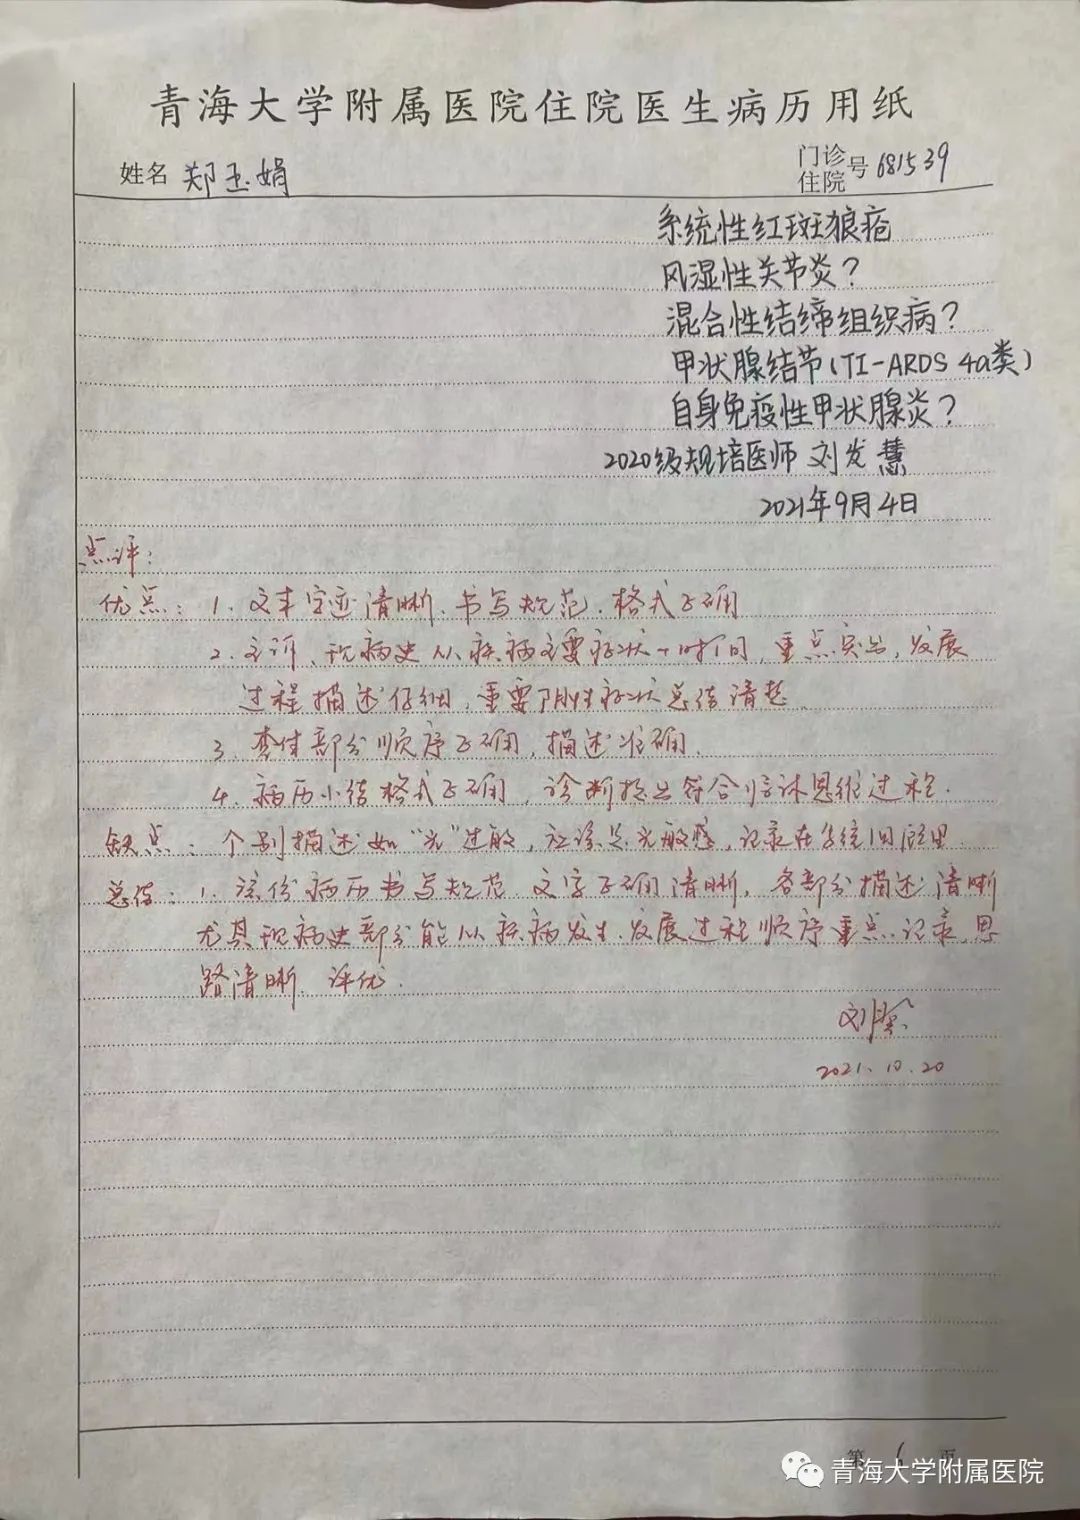 青海大学附属医院住院医生病历用纸
姓名 郑玉娟
门诊
住院 号 681539
系统性红斑狼疮
风湿性关节炎？
混合性结缔组织病？
甲状腺结节(TI-ARDS 4a类)
自身免疫性甲状腺炎？
2020级规培医师 刘发慧
2021年9月4日
点评：
优点：1. 文本字迹清晰、书写规范、格式正确
2. 主诉、现病史从疾病主要症状+时间，重点突出，发展
过程描述仔细，重要阴性症状总结清楚。
3. 查体部分顺序正确，描述准确。
4. 病历小结格式正确，诊断提出符合临床思维过程.
缺点：个别描述如“光”过敏，应该是光敏感，记录在系统回顾里.
总结：1. 该份病历书写规范、文字正确清晰，各部分描述清晰
尤其现病史部分能从疾病发生、发展过程顺序重点记录，思
路清晰. 评优.
2021. 10. 20
第 6 页
青海大学附属医院